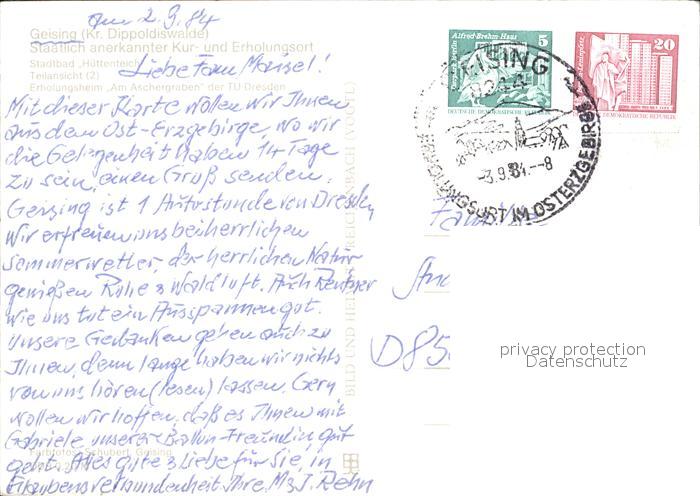 am 2.9.84
Geising (Kr. Dippoldiswalde)
Staatlich anerkannter Kur- und Erholungsort
Stadtbad „Hüttenteich"
Teilansicht (2)
Erholungsheim „Am Aschergraben" der TU Dresden
Liebe Fam Maisel!
Mit dieser Karte wollen wir Ihnen
aus dem Ost-Erzgebirge, wo wir
die Gelegenheit haben 14 Tage
zu sein, einen Gruß senden.
Geising ist 1 Autostunde von Dresden
Wir erfreuen uns bei herrlichen
Sommerwetter, der herrlichen Natur
genießen Ruhe & Waldluft. Auch Rentner
wie uns tut ein Ausspannen gut.
Unsere Gedanken gehen auch zu
Ihnen, denn lange haben wir nichts
von uns hören (lesen) lassen. Gern
wollen wir hoffen, daß es Ihnen mit
Gabriele unserer Ballon-Freundin gut
geht. Alles gute & Liebe für Sie, in
Glaubensverbundenheit Ihre M & J. Rehn
Farbfotos: Schubert, Geising
BILD UND HEIMAT REICHENBACH (VOGTL)
Alfred-Brehm-Haus
5
Tierpark Berlin
DEUTSCHE DEMOKRATISCHE REPUBLIK
Leninplatz
20
DEMOKRATISCHE REPUBLIK
GEISING
-3.9.84.-8
ERHOLUNGSORT IM OSTERZGEBIRGE
Familie
D 85
privacy protection
Datenschutz